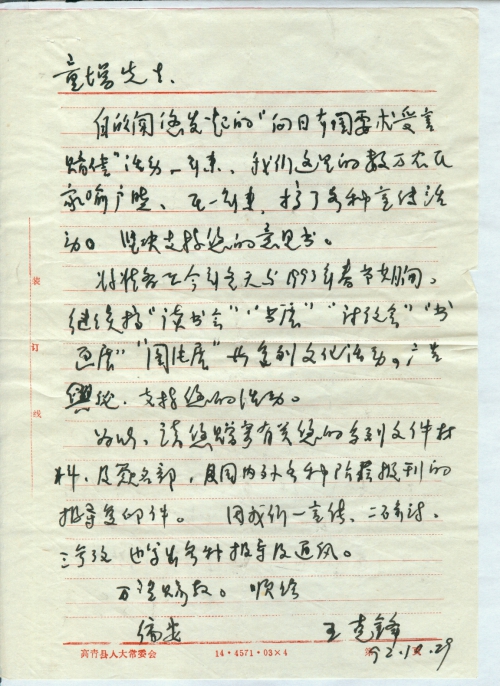 童增先生、
自欣闻您发起的"向日本国要求受害
赔偿"活动一年来、我们这里的数万农民
家喻户晓、在一年来，搞了各种宣传活
动。坚决支持您的意见书。
今年冬天与1993年春节期间、
继续搞"读书会"、"书展"、"讨论会"、"书
画展"、"图片展"等系列文化活动。广告
舆论、支持您的活动。
为此、请您赠寄有关您的系列文件材
料、及签名部、及国内外各种阶层报刊的
报导复印件。因我们一宣传、二研讨、
三参考 也写出各种报导及通讯。
万望赐教。顺给
编安
王克锋
92.10.29
装
订
线
高青县人大常委会
14·4571·03×4
第